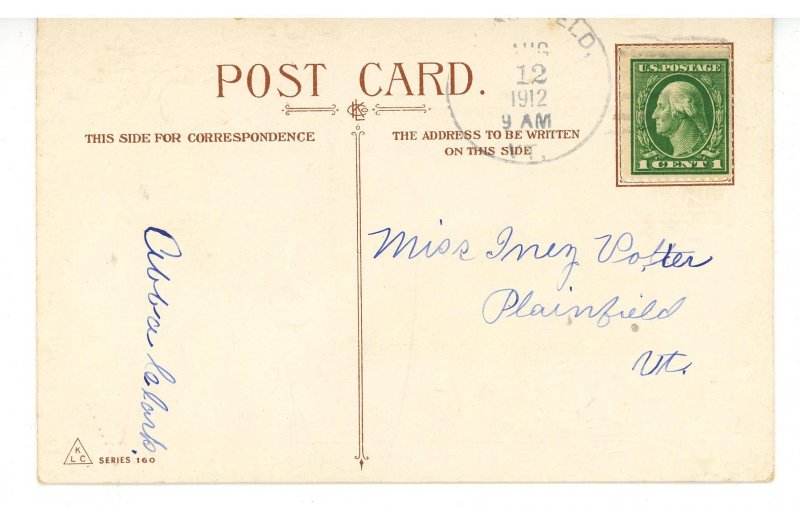 POST CARD.
THIS SIDE FOR CORRESPONDENCE
THE ADDRESS TO BE WRITTEN
ON THIS SIDE
AUG
12
1912
9 AM
VT.
U.S. POSTAGE
1 CENT 1
Miss Inez Potter
Plainfield
Vt.
Abba Clark
K
L C
SERIES 160